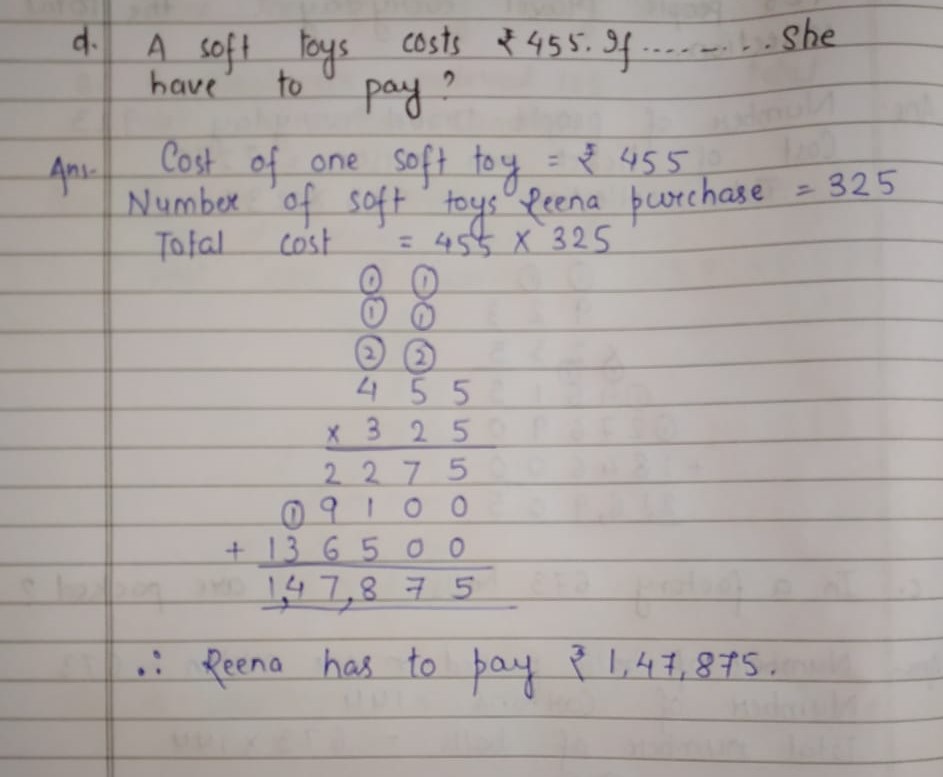 d. A soft toys costs ₹455. If .......... She
have to pay?
Ans. Cost of one soft toy = ₹ 455
Number of soft toys Reena purchase = 325
Total cost = 455 × 325
① ①
① ①
② ②
4 5 5
× 3 2 5
2 2 7 5
① 9 1 0 0
+ 1 3 6 5 0 0
1,4 7,8 7 5
∴ Reena has to pay ₹ 1,47,875.